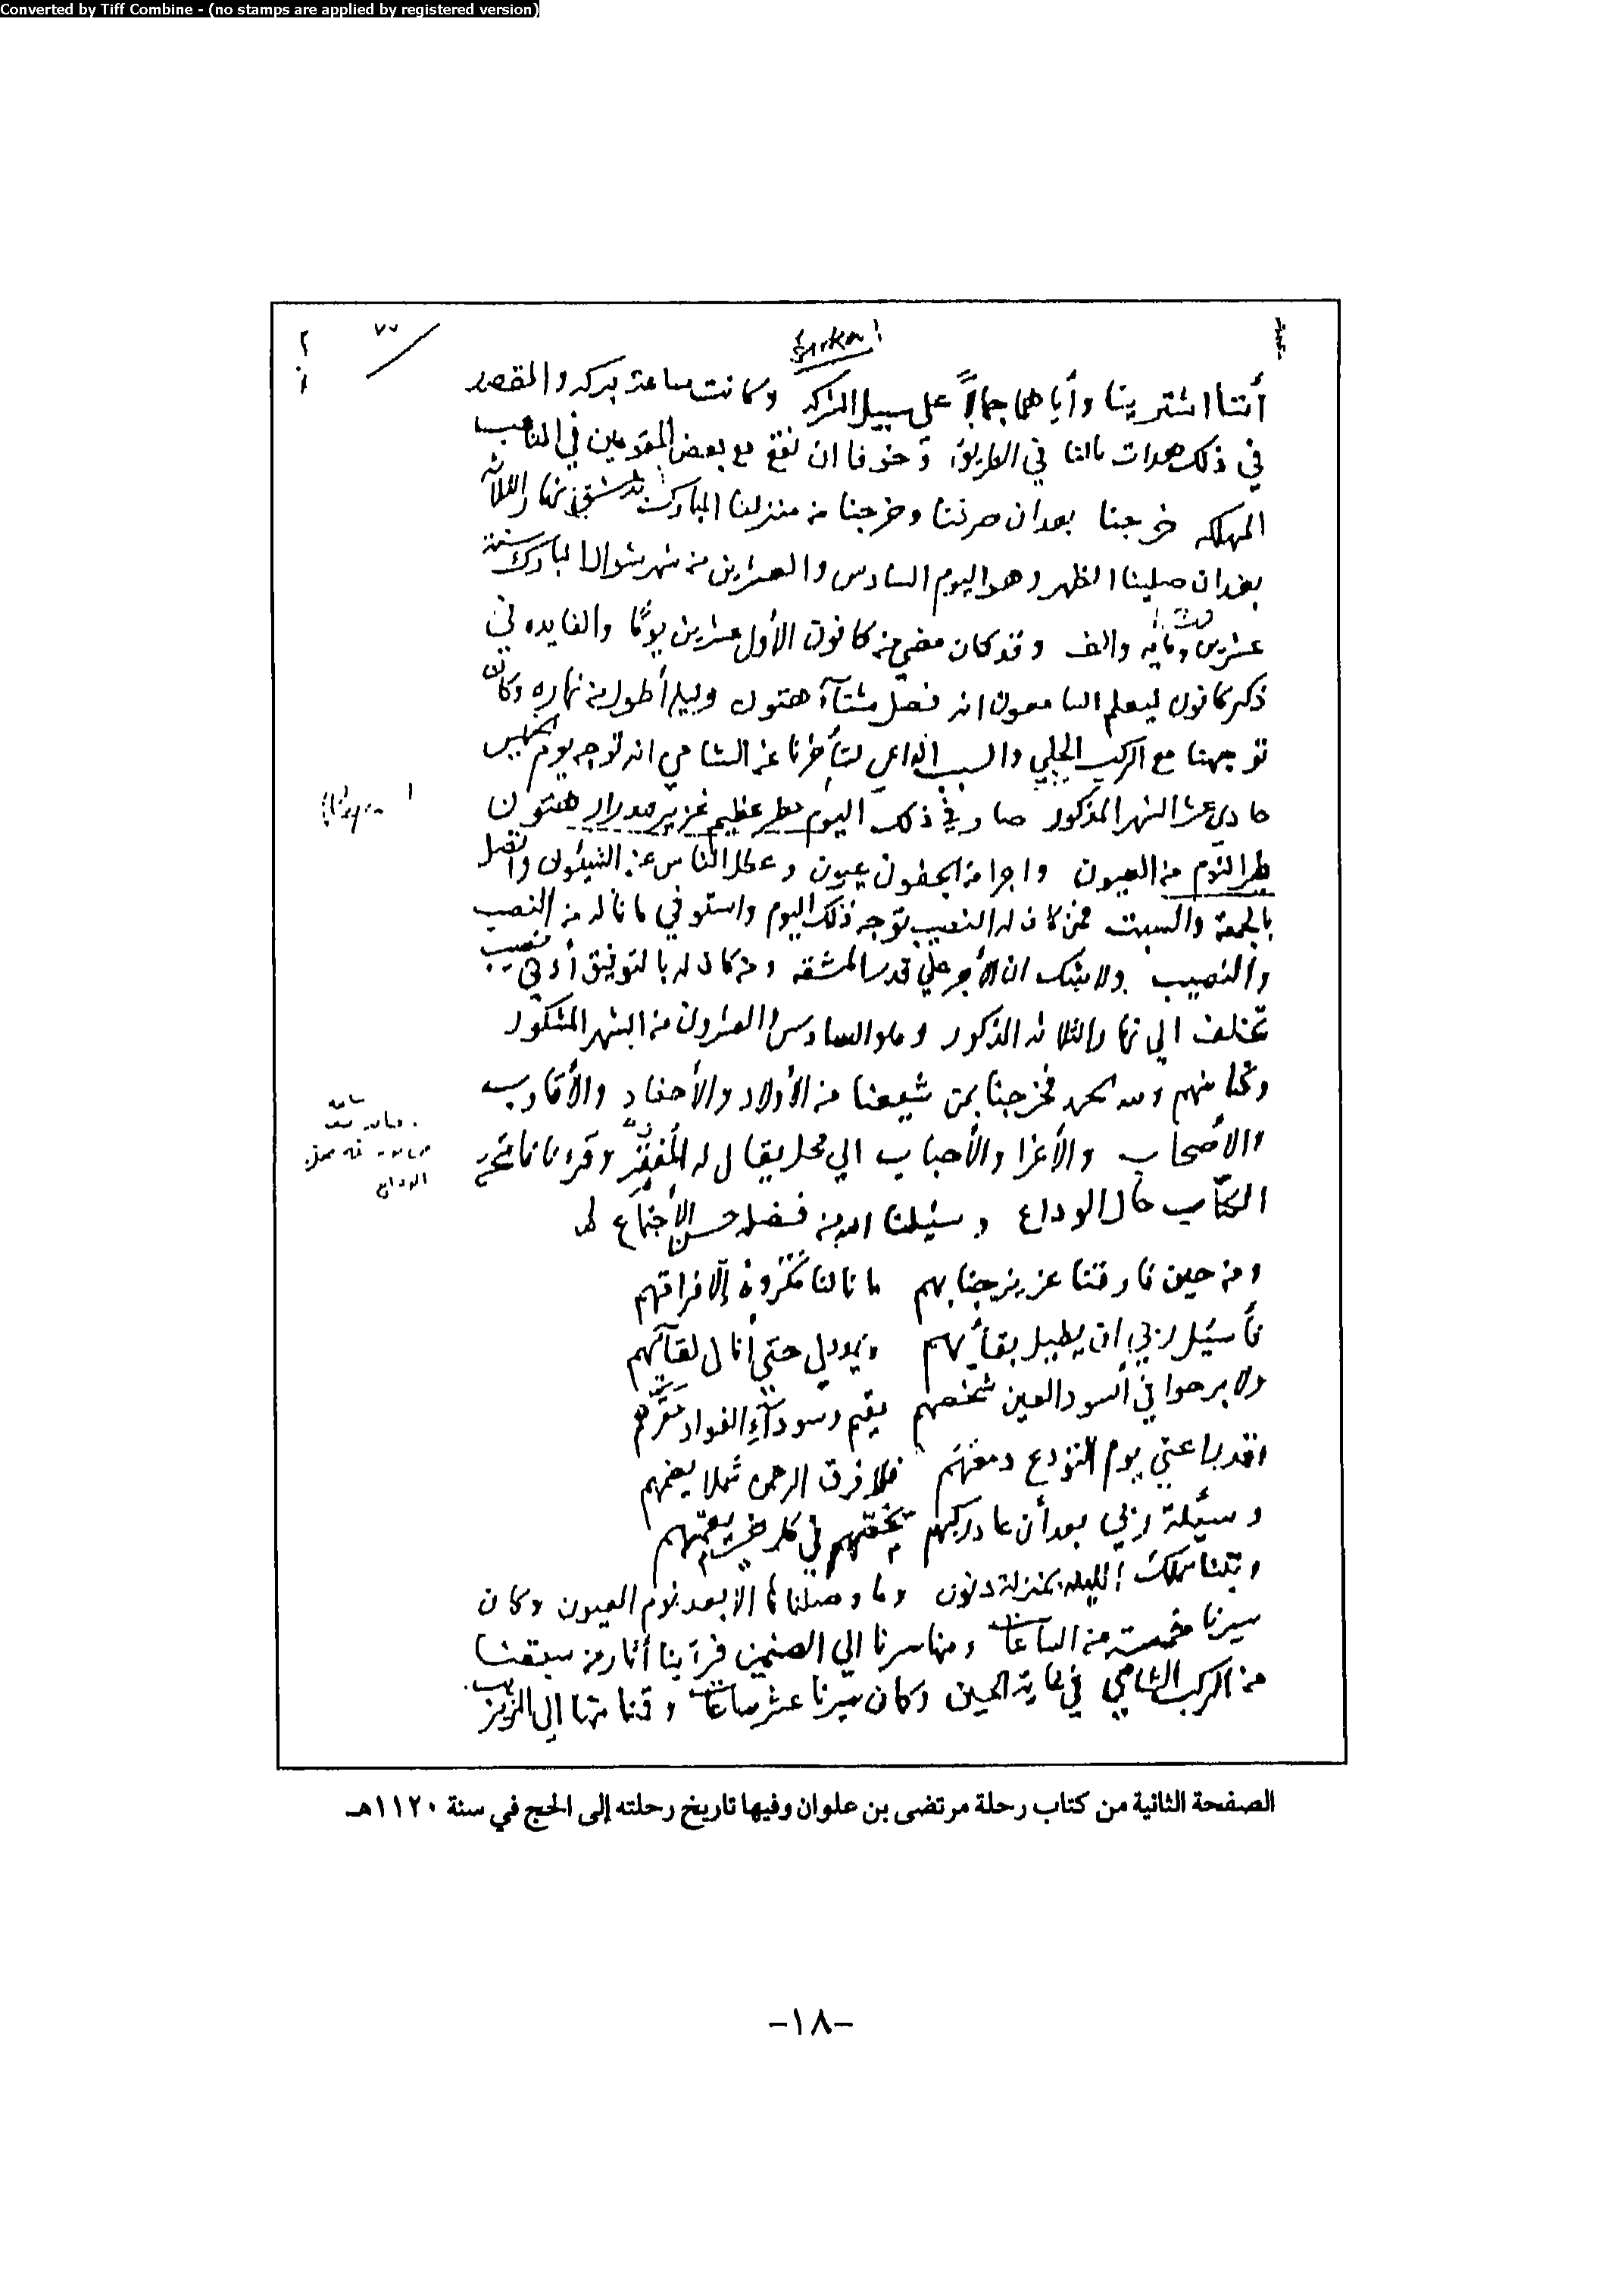 Converted by Tiff Combine - (no stamps are applied by registered version)
Sirka!
أننا اشترينا وأياهما جمالاً على سبيل الشركه وكانت ساعة بركه والمقصد
في ذلك هدات بالنا في الطريق وخوفا ان نقع مع بعض المقومين في
المهلكه خرجنا بعد ان صرفنا وخرجنا من منزلنا المبارك بدمشق نهار الثلاثا
بعد ان صلينا الظهر وهو اليوم السادس والعشرين من شهر شوال المبارك سنة
عشرين ومايه والف وقد كان مضى من كانون الأول عشرين يومًا والفايده في
ذكر كانون ليعلم السامعون انه فصل شتآء هتون وليله أطول من نهاره وكان
توجهنا مع الركب الحلبي والسبب الداعي لتأخرنا عن الشامي انه توجه يوم الخميس
حادي عشر الشهر المذكور صار في ذلك اليوم مطر عظيم غزير مدرار هتون
طير النوم من العيون واجرا من الجفون عيون وعطل الناس عن الشئون واتصل
بالجمعة والسبت فمن كان له النصيب توجه ذلك اليوم واستوفي ما ناله من النصب
والنصيب ولا شك ان الأجر على قدر المشقه ومن كان له بالتوفيق أوفى نصيب
تخلف الي نهار الثلاثه المذكور وهو السادس والعشرون من الشهر المشكور
وكنا منهم ولله الحمد فخرجنا بمن شيعنا من الأولاد والأحفاد والأقارب
والأصحاب والأعزا والأحباب الي محل يقال له وقرءنا فاتحة
الكتاب حال الوداع وسئلنا الله من فضله حسن الأجتماع
ومن حين فارقنا عزيز جنابهم ما نالنا مكروه إلا فراقهم
فأسئل ربي ان يطيل بقأيهم حتى أنال لقآئهم
ولا برحوا في أسود العين شخصهم يقيم وسودآء الفواد مقرهم
يوم التودع دمعهم فلا فرق الرحمن شملا يضمهم
وسئلة ربي بعد أن في كل خير يعمهم
وبتنا تلك الليله بمنزلة دنون وما وصلناها الا بعد نوم العيون وكان
سيرنا خمسة من الساعات ومنها سرنا الي الصنمين فرآينا أثار من سبقنا
من الركب الشامي في غاية الحسن وكان سيرنا عشر ساعات وقمنا منها إلى المزيريب
الصفحة الثانية من كتاب رحلة مرتضى بن علوان وفيها تاريخ رحلته إلى الحج في سنة ١١٢٠هـ
-١٨-